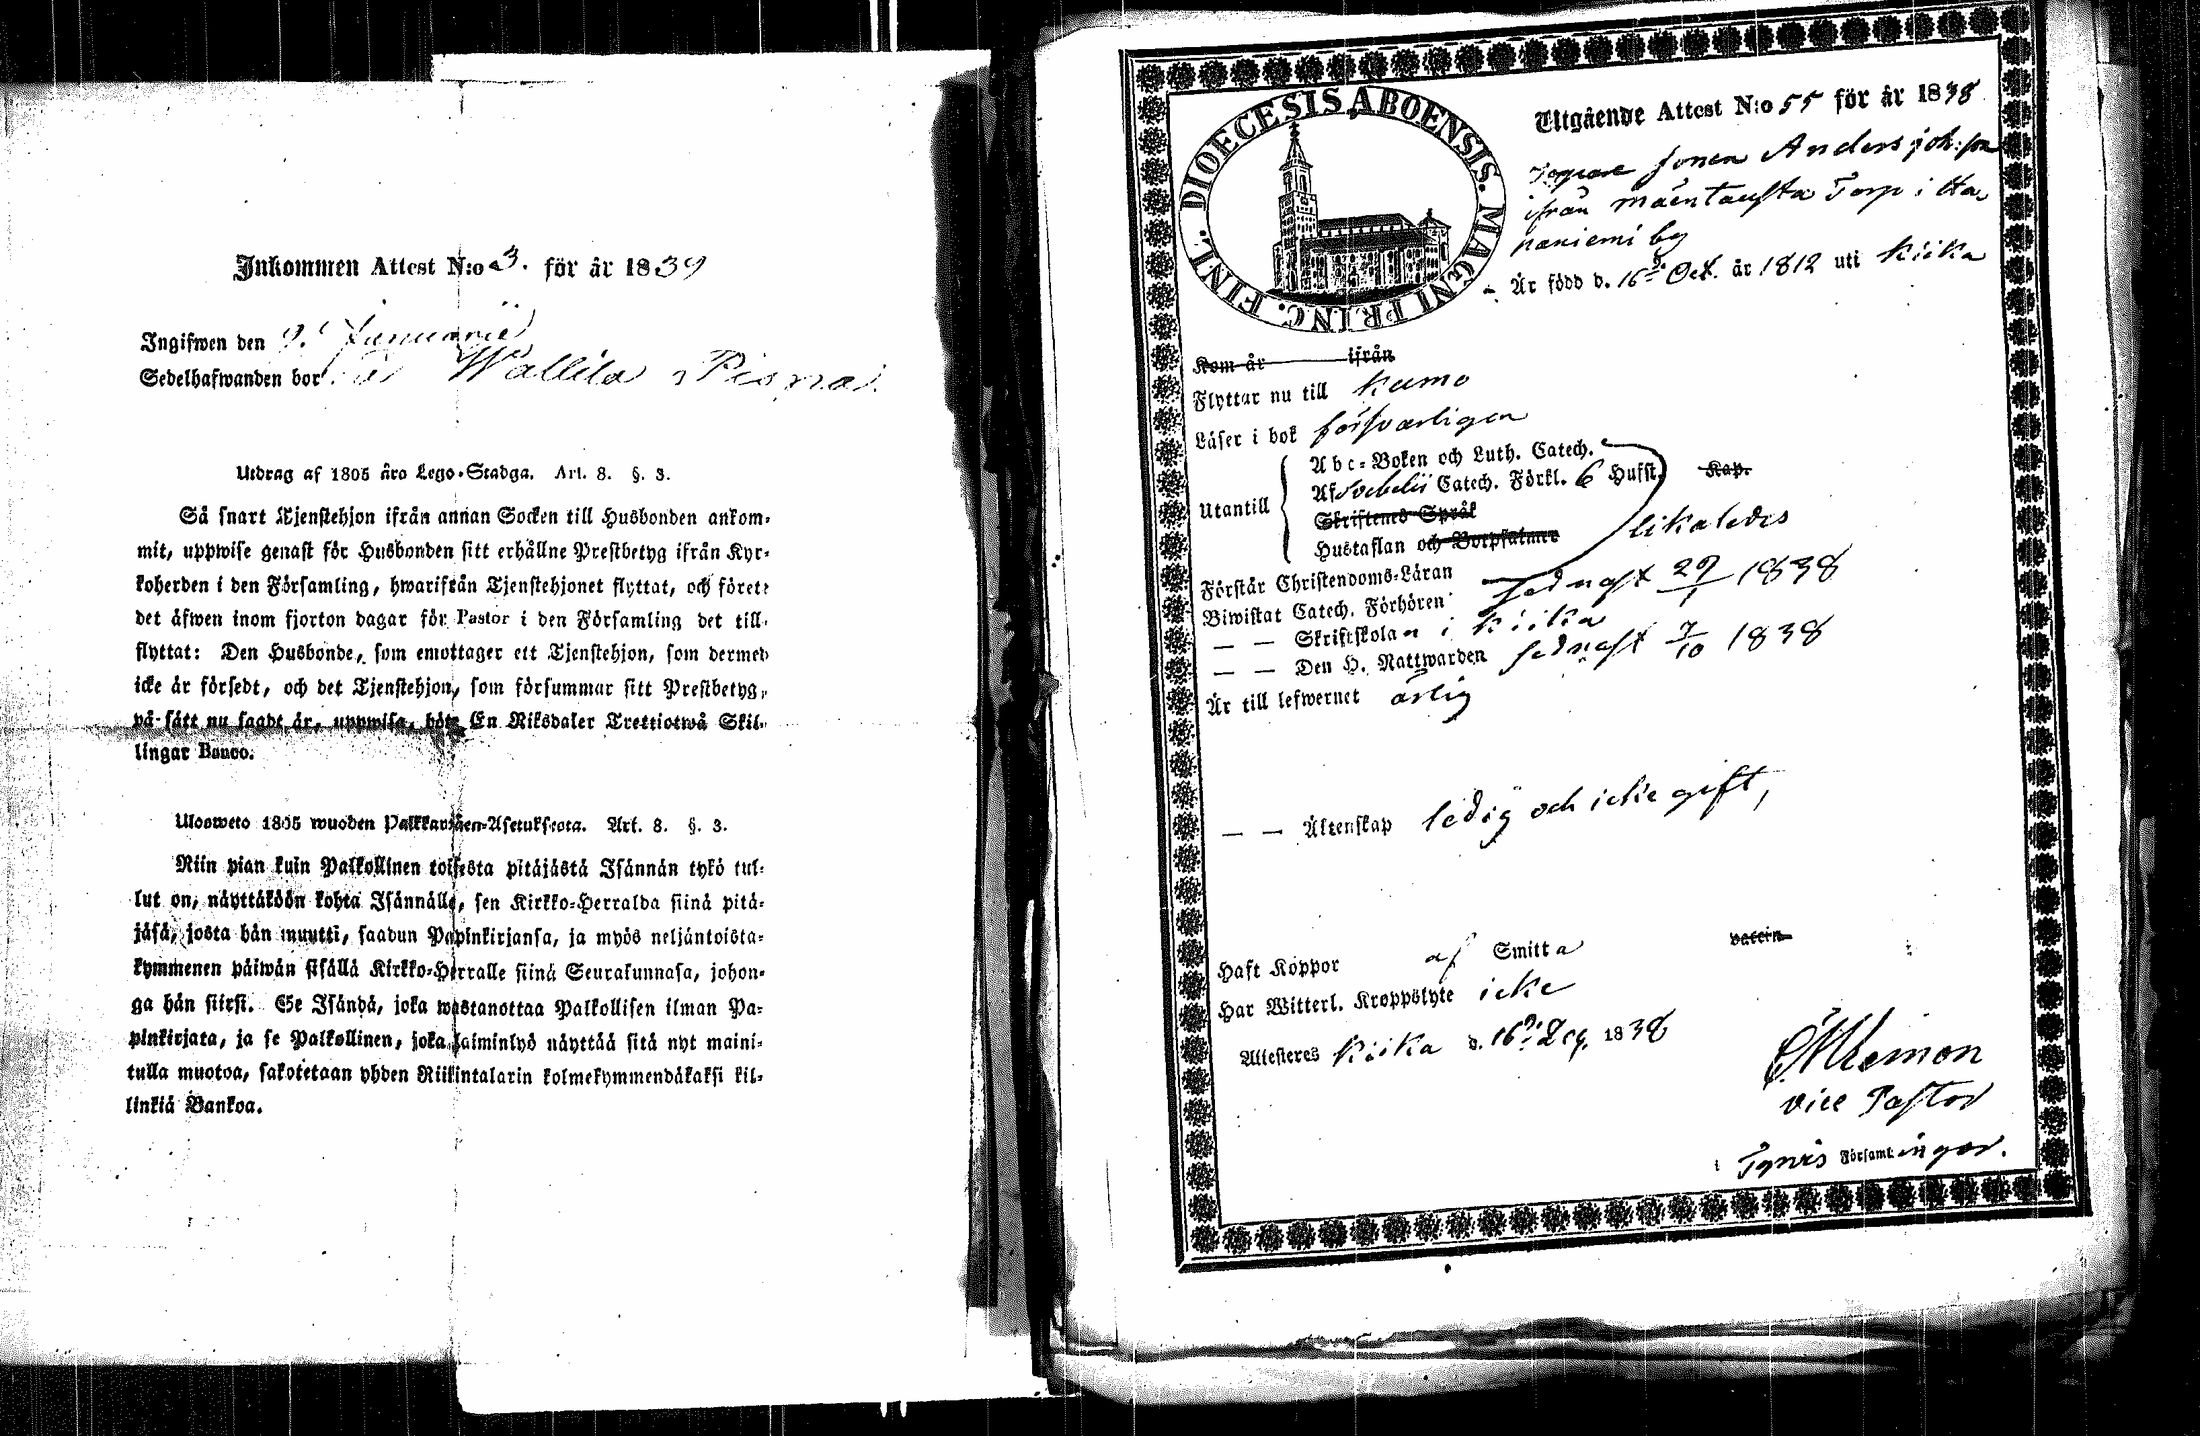 Inkommen Attest N:o 3. för år 1839
Ingifwen den 9. Januarii
Sedelhafwanden bor Wallila
Utdrag af 1805 års Lego-Stadga. Art. 8. §. 3.
Så snart Tjenstehjon ifrån annan Socken till Husbonden ankom-
mit, uppwise genast för Husbonden sitt erhållne Prestbetyg ifrån Kyr-
koherden i den Församling, hwarifrån Tjenstehjonet flyttat, och förete
det äfwen inom fjorton dagar för Pastor i den Församling det till-
flyttat: Den Husbonde, som emottager ett Tjenstehjon, som dermed
icke är försedt, och det Tjenstehjon, som försummar sitt Prestbetyg,
på sätt nu sagdt är, uppwisa, böte En Riksdaler Trettiotwå Skil-
lingar Banco.
Ulosweto 1805 wuoden Palkkawäen-Asetuksesta. Art. 8. §. 3.
Niin pian kuin Palkollinen toisesta pitäjästä Isännän tykö tul-
lut on, näyttäköön kohta Isännälle, sen Kirkko-Herralda siinä pitä-
jäsä, josta hän muutti, saadun Papinkirjansa, ja myös neljäntoista-
kymmenen päiwän sisällä Kirkko-Herralle siinä Seurakunnasa, johon-
ga hän siirsi. Se Isändä, joka wastanottaa Palkollisen ilman Pa-
pinkirjata, ja se Palkollinen, joka laiminlyö näyttää sitä nyt maini-
tulla muotoa, sakotetaan yhden Riikintalarin kolmekymmendäkaksi kil-
linkiä Bankoa.
DIOECESIS ABOENSIS. MAGNI PRINC. FINL.
Utgående Attest N:o 55 för år 1838
sonen Anders joh:son
ifrån Torp i Ha
paniemi by
Är född d. 16de Oct. år 1812 uti Kiika
Kom år ifrån
Flyttar nu till Kumo
Läser i bok försvarligen
Utantill
Abc-Boken och Luth. Catech.
Af Svebelii Catech. Förkl. 6 Hufst. Kap.
Skriftenes Språk
Hustaflan och Botpsalmer
likaledes
Förstår Christendoms-Läran
Biwistat Catech. Förhören sednast 29/1 1838
— — Skriftskolan i Kiika
— — Den H. Nattwarden sednast 7/10 1838
Är till lefwernet ärlig
— — Äktenskap ledig och icke gift,
Haft Koppor af Smitta vaccin
Har Witterl. Kroppslyte icke
Attesteres Kiika d. 16de Dec. 1838
vice Pastor
i Tyrvis Församlingar.